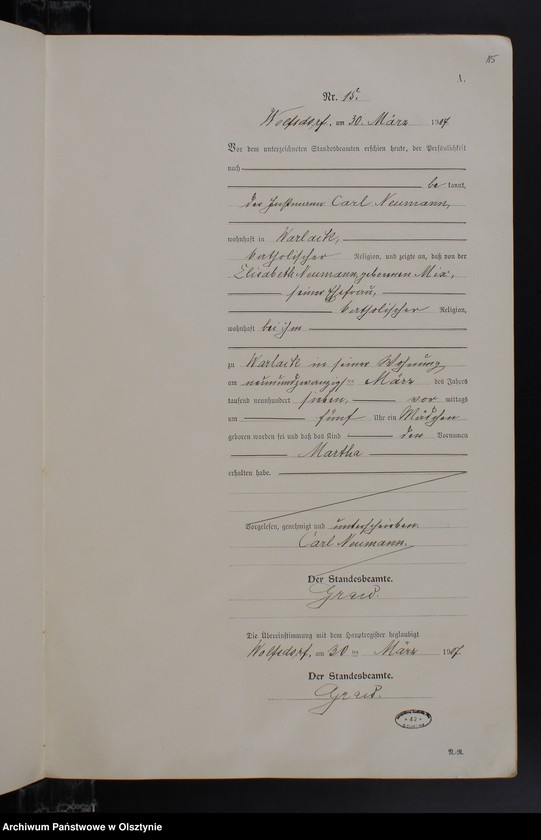 115
A.
Nr. 15.
Wolfsdorf, am 30. März 1907.
Vor dem unterzeichneten Standesbeamten erschien heute, der Persönlichkeit
nach
be kannt,
der Carl Neumann,
wohnhaft in Warlack,
katholischer Religion, und zeigte an, daß von der
Elisabeth Neumann, geborenen Mix,
seiner Ehefrau,
katholischer Religion,
wohnhaft bei ihm
zu Warlack in seiner Wohnung
am neunundzwanzigsten März des Jahres
tausend neunhundert sieben, vor mittags
um fünf Uhr ein Mädchen
geboren worden sei und daß das Kind den Vornamen
Martha
erhalten habe.
Vorgelesen, genehmigt und unterschrieben.
Carl Neumann.
Der Standesbeamte.
Graw.
Die Übereinstimmung mit dem Hauptregister beglaubigt
Wolfsdorf, am 30 ten März 1907.
Der Standesbeamte.
Graw.
* 42 *
N.-R.
Archiwum Państwowe w Olsztynie